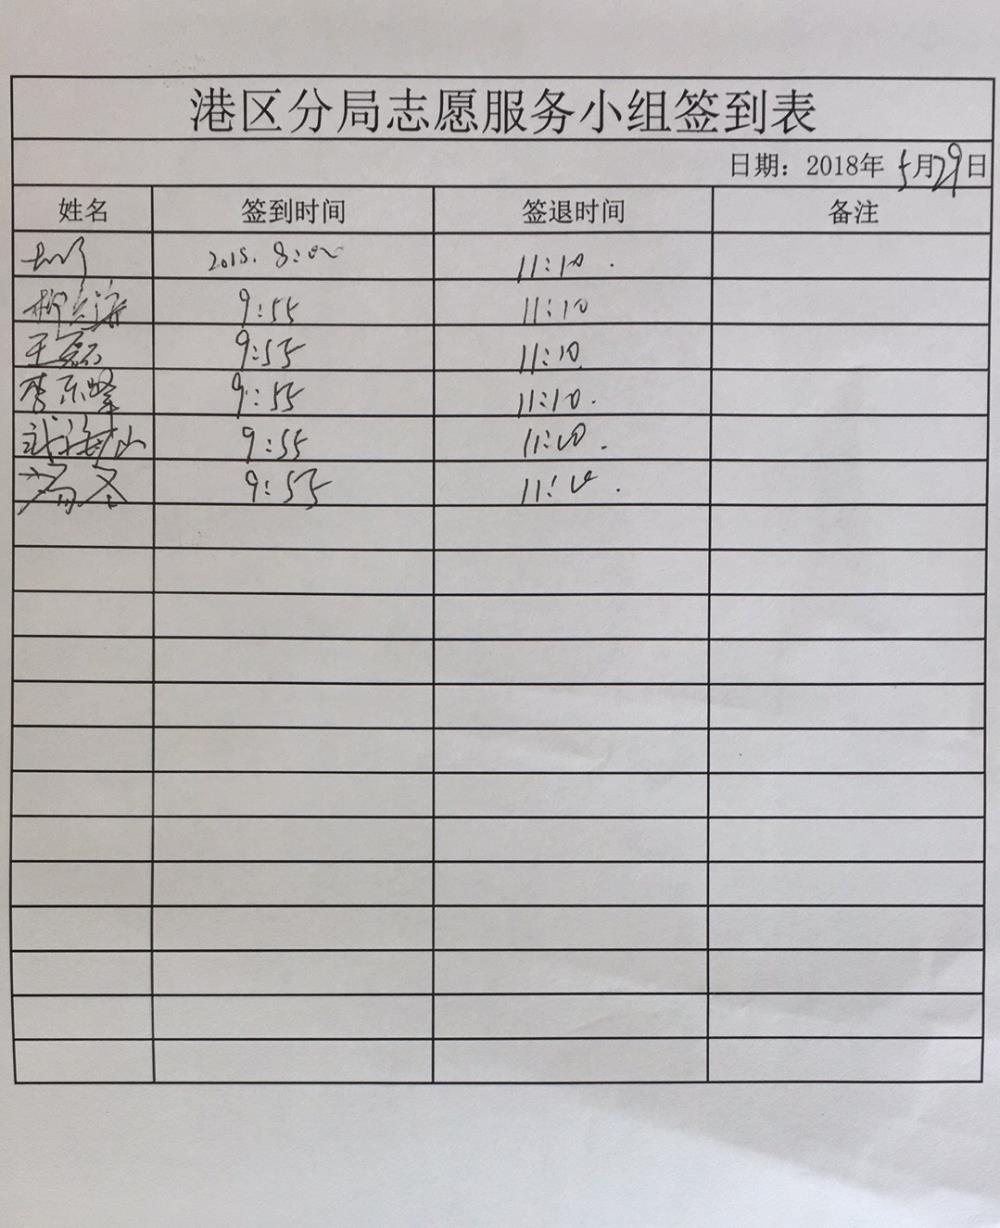 港区分局志愿服务小组签到表
日期：2018年 5月29日
姓名 签到时间 签退时间 备注
11:10
9:55 11:10
王磊 9:55 11:10
李东峰 9:55 11:10.
武海山 9:55 11:10.
冯冬 9:55 11:10.